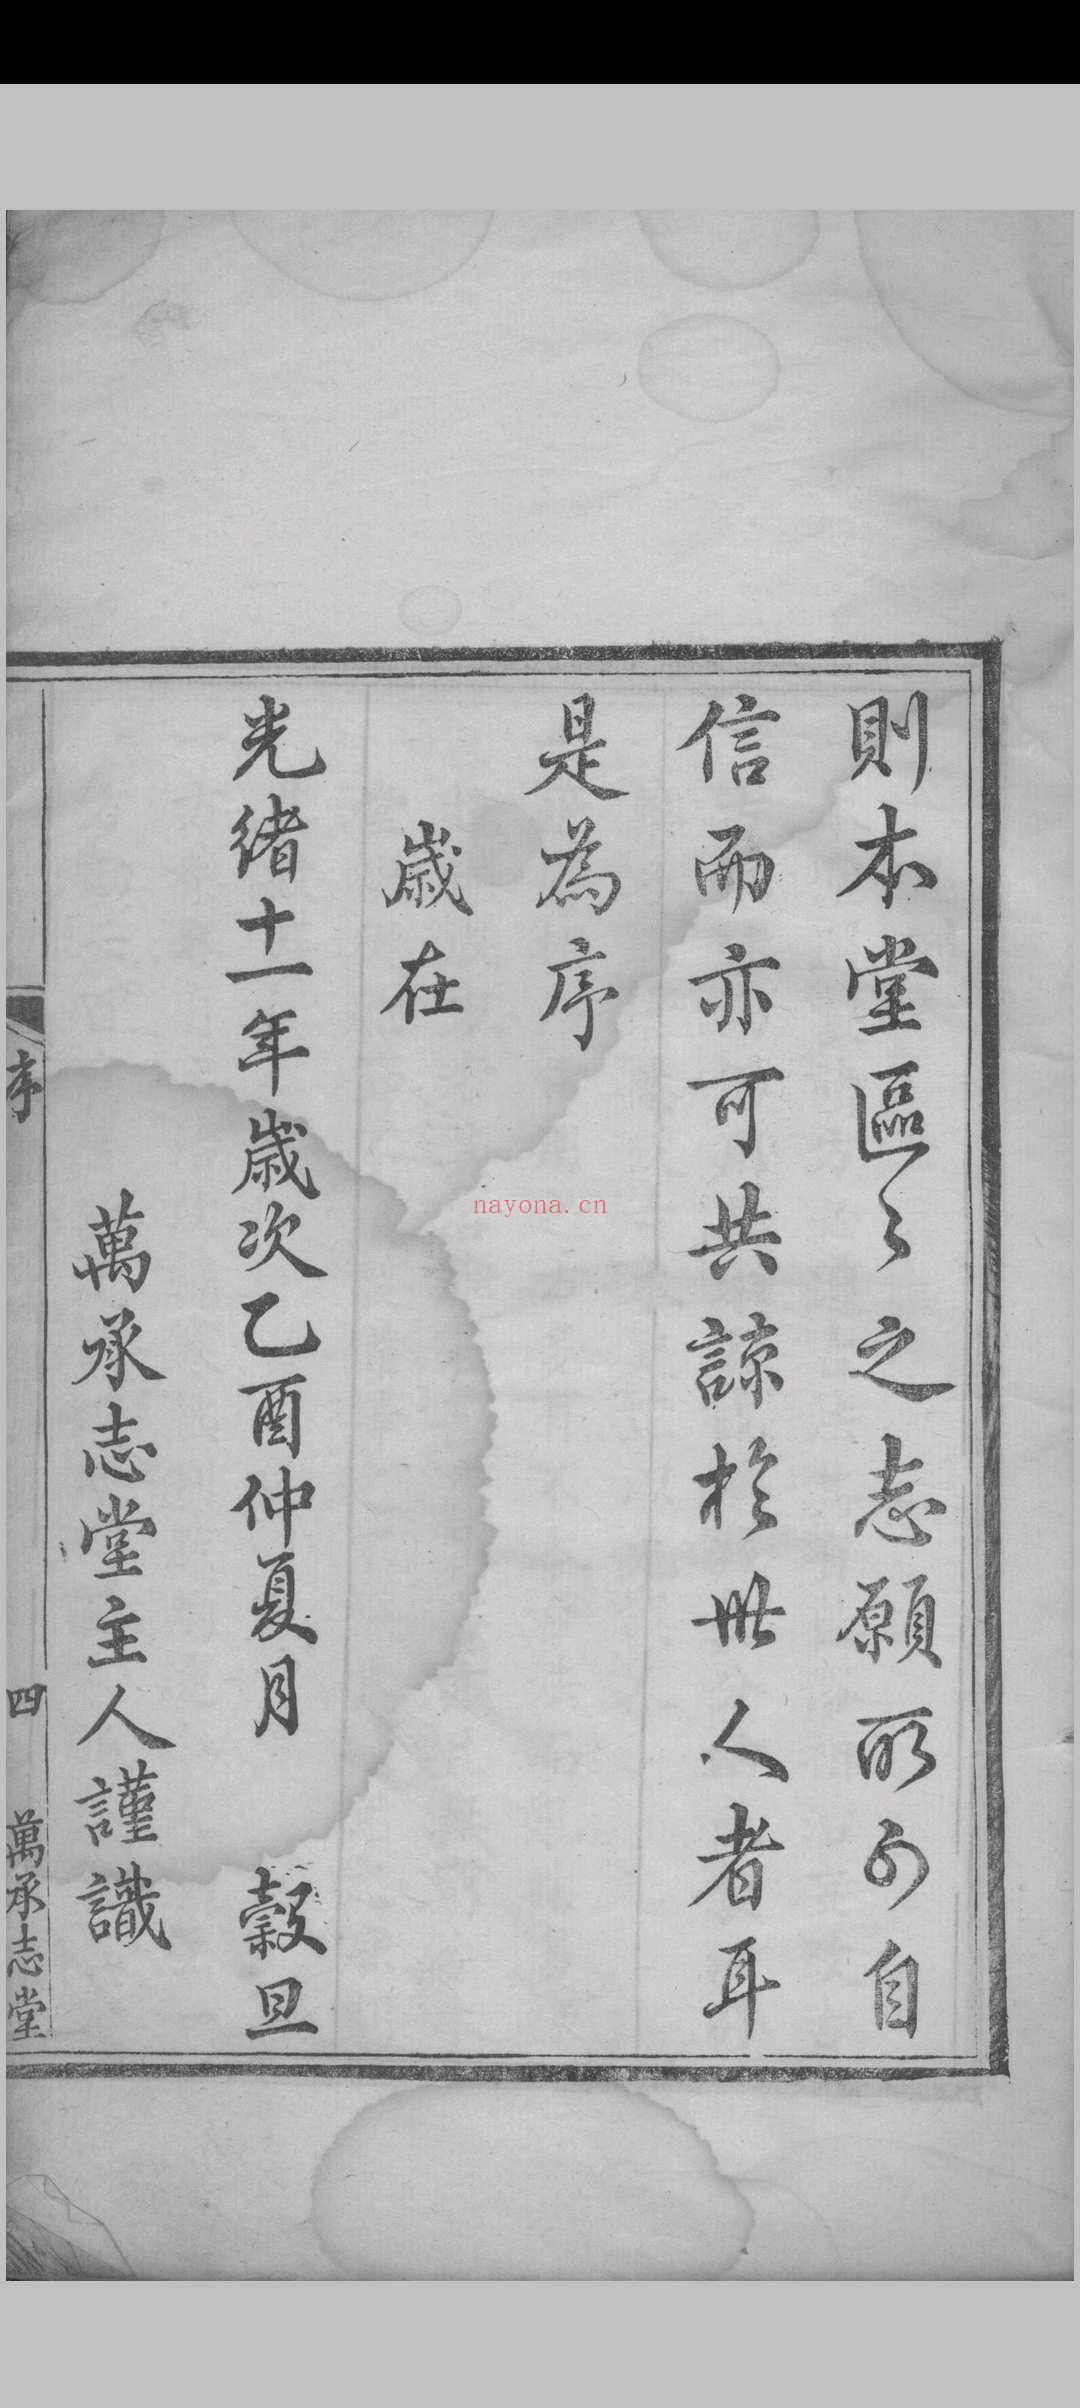 則本堂區〻之志願所可自
信而亦可共諒於世人者耳
是為序
歲在
光緒十一年歲次乙酉仲夏月 穀旦
萬承志堂主人謹識
序 四 萬承志堂
nayona.cn